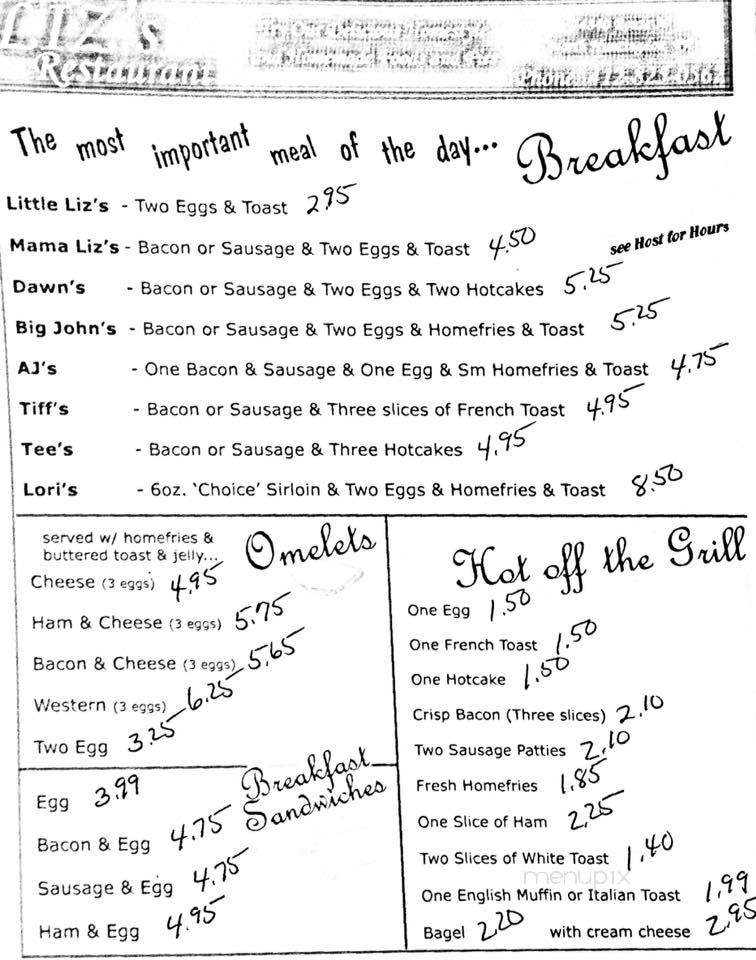 LIZ's
Restaurant
The most important meal of the day... Breakfast
Little Liz's - Two Eggs & Toast 2.95
Mama Liz's - Bacon or Sausage & Two Eggs & Toast 4.50
see Host for Hours
Dawn's - Bacon or Sausage & Two Eggs & Two Hotcakes 5.25
Big John's - Bacon or Sausage & Two Eggs & Homefries & Toast 5.25
AJ's - One Bacon & Sausage & One Egg & Sm Homefries & Toast 4.75
Tiff's - Bacon or Sausage & Three slices of French Toast 4.95
Tee's - Bacon or Sausage & Three Hotcakes 4.95
Lori's - 6oz. ‘Choice’ Sirloin & Two Eggs & Homefries & Toast 8.50
Omelets
served w/ homefries &
buttered toast & jelly...
Cheese (3 eggs) 4.95
Ham & Cheese (3 eggs) 5.75
Bacon & Cheese (3 eggs) 5.65
Western (3 eggs) 6.25
Two Egg 3.25
Breakfast
Sandwiches
Egg 3.99
Bacon & Egg 4.75
Sausage & Egg 4.75
Ham & Egg 4.95
Hot off the Grill
One Egg 1.50
One French Toast 1.50
One Hotcake 1.50
Crisp Bacon (Three slices) 2.10
Two Sausage Patties 2.10
Fresh Homefries 1.85
One Slice of Ham 2.25
Two Slices of White Toast 1.40
menupix
One English Muffin or Italian Toast 1.99
Bagel 2.20 with cream cheese 2.95